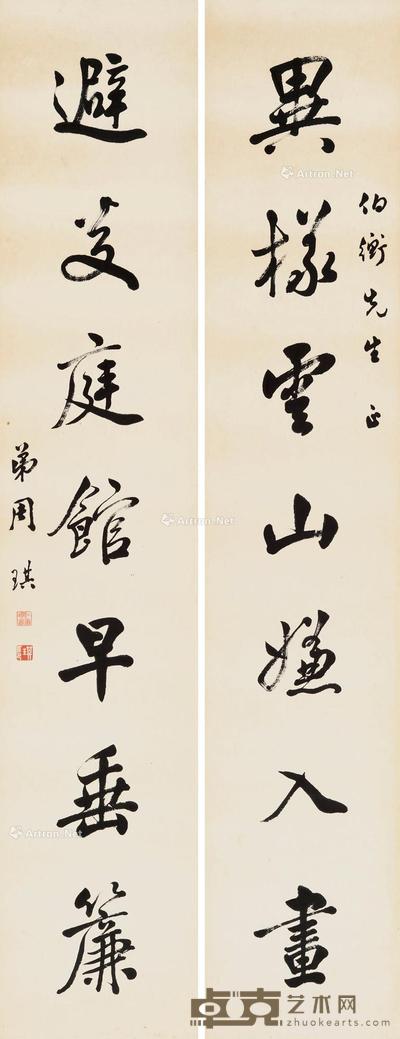 異樣雲山嫌入畫
伯衡先生 正
避炎庭館早垂簾
弟周琪
Artron.Net
Artron.Net
Artron.Net
Artron.Net
Artron.Net
卓克艺术网
zhuokearts.com